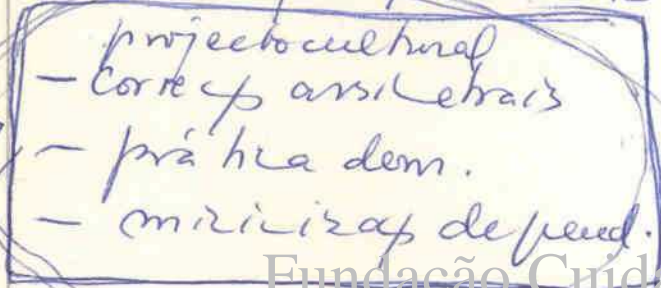 projecto cultural
– Correcç assimetrais
– prática dem.
– minimizaç depend.
Fundação Cuid